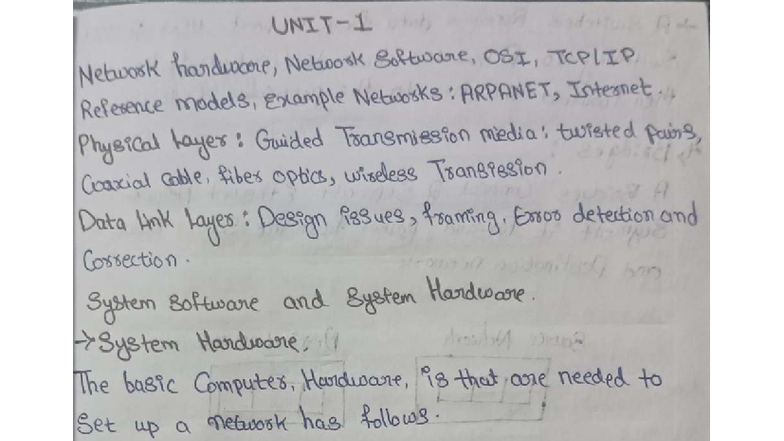 UNIT-1
Network hardware, Network Software, OSI, TCP/IP
Reference models, Example Networks: ARPANET, Internet.
Physical Layer: Guided Transmission media: twisted pairs,
Coaxial Cable, fiber optics, wireless Transission.
Data link Layer: Design issues, framing, Error detection and
Correction.
System Software and System Hardware.
→System Hardware.
The basic Computer, Hardware, is that are needed to
Set up a network has follows.